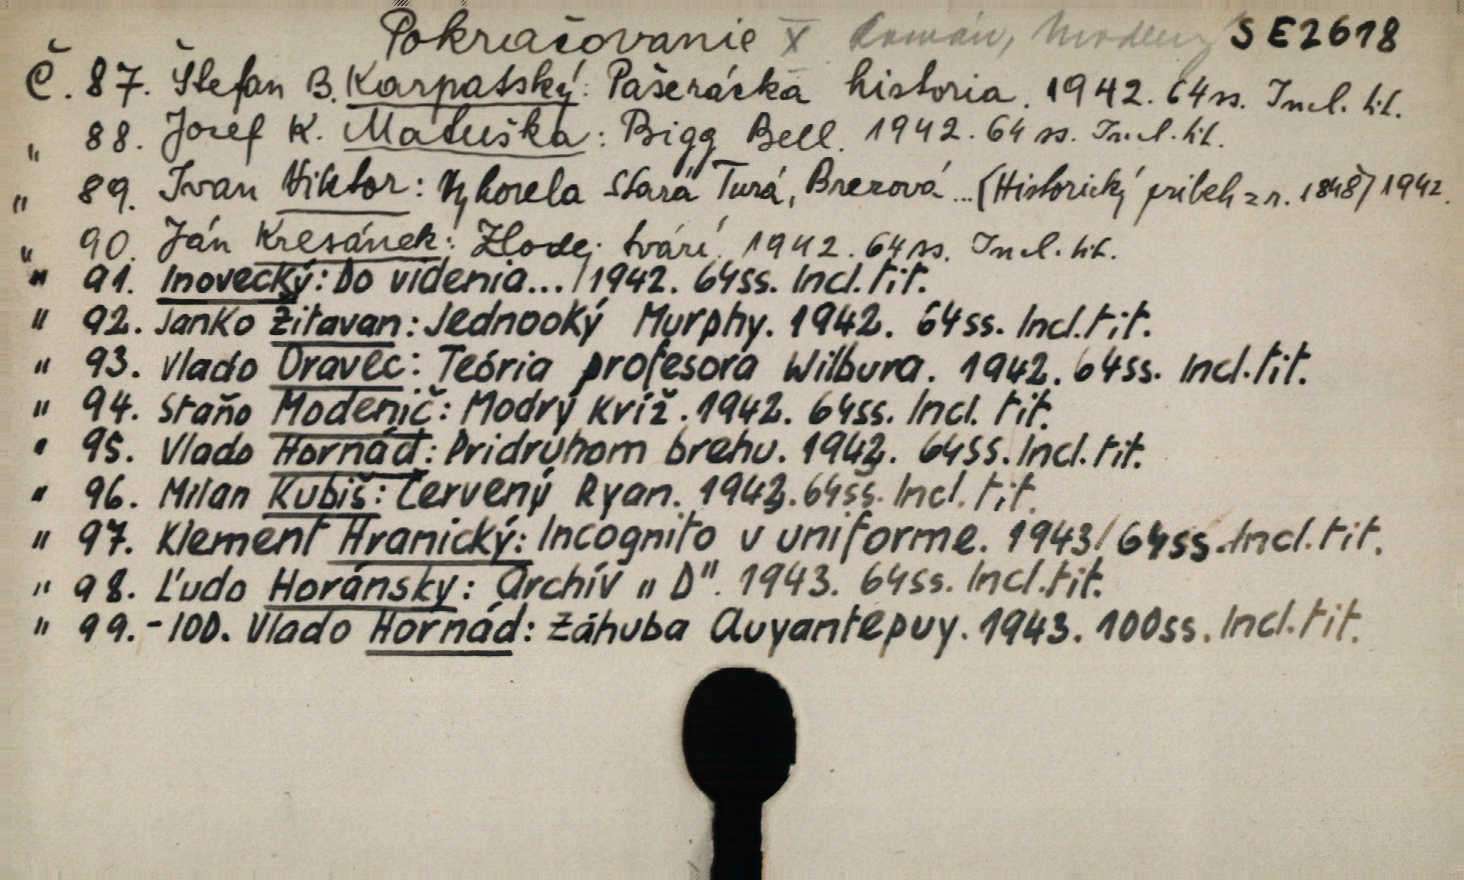 Pokračovanie X Román, Moderný SE2618
Č. 87. Štefan B. Karpatský: Pašerácka historia. 1942. 64ss. Incl. tit.
" 88. Josef K. Matuška: Bigg Bell. 1942. 64 ss. Incl. tit.
" 89. Ivan Viktor: Vyhorela Stará Turá, Brezová... (Historický príbeh z r. 1848) 1942.
" 90. Ján Kresánek: Zlodej tvárí. 1942. 64ss. Incl. tit.
" 91. Inovecký: Do videnia... 1942. 64ss. Incl. tit.
" 92. Janko Žitavan: Jednooký Murphy. 1942. 64ss. Incl. tit.
" 93. Vlado Oravec: Teória profesora Wilbura. 1942. 64ss. Incl. tit.
" 94. Staňo Modenič: Modrý kríž. 1942. 64ss. Incl. tit.
" 95. Vlado Hornád: Pri druhom brehu. 1942. 64ss. Incl. tit.
" 96. Milan Kubiš: Červený Ryan. 1942. 64ss. Incl. tit.
" 97. Klement Hranický: Incognito v uniforme. 1943/ 64ss. Incl. tit.
" 98. Ľudo Horánsky: Archív „D". 1943. 64ss. Incl. tit.
" 99.-100. Vlado Hornád: Záhuba Auyantepuy. 1943. 100ss. Incl. tit.